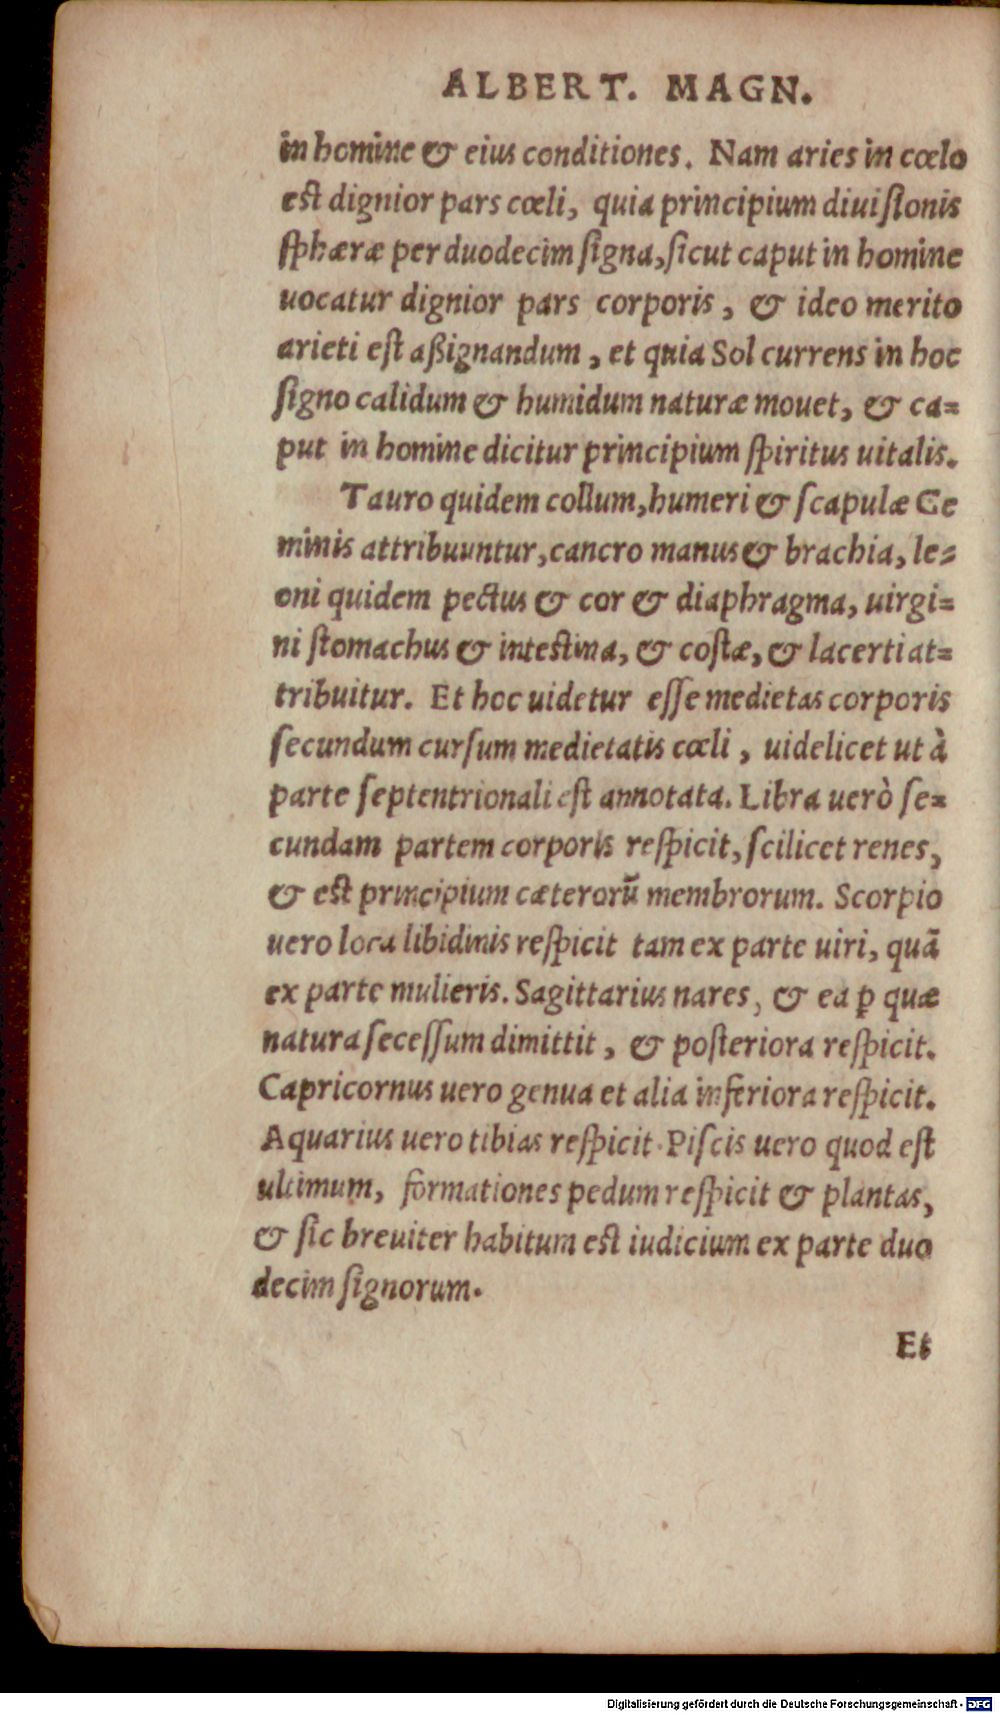 ALBERT. MAGN.
in homine & eius conditiones. Nam aries in cœlo
est dignior pars cœli, quia principium diuiſionis
ſphæræ per duodecim ſigna, ſicut caput in homine
uocatur dignior pars corporis, & ideo merito
arieti eſt aßignandum, et quia Sol currens in hoc
ſigno calidum & humidum naturæ mouet, & ca=
put in homine dicitur principium ſpiritus uitalis.
Tauro quidem collum, humeri & ſcapulæ Ge
minis attribuuntur, cancro manus & brachia, le=
oni quidem pectus & cor & diaphragma, uirgi=
ni ſtomachus & inteſtina, & coſtæ, & lacerti at=
tribuitur. Et hoc uidetur eſſe medietas corporis
ſecundum curſum medietatis cœli, uidelicet ut à
parte ſeptentrionali eſt annotata. Libra uerò ſe=
cundam partem corporis reſpicit, ſcilicet renes,
& est principium cæterorū membrorum. Scorpio
uero loca libidinis reſpicit tam ex parte uiri, quā
ex parte mulieris. Sagittarius nares, & ea ꝑ quæ
natura ſeceſſum dimittit, & poſteriora reſpicit.
Capricornus uero genua et alia inferiora reſpicit.
Aquarius uero tibias reſpicit. Piſcis uero quod eſt
ultimum, formationes pedum reſpicit & plantas,
& ſic breuiter habitum est iudicium ex parte duo
decim ſignorum.
Et
Digitalisierung gefördert durch die Deutsche Forschungsgemeinschaft - DFG